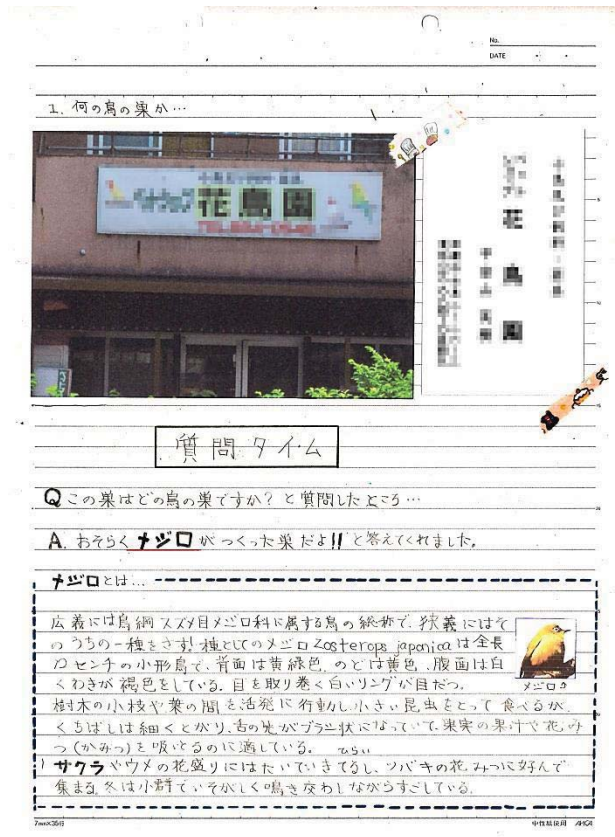 No.
DATE
1. 何の鳥の巣か…
花鳥園
花
鳥
園
質問タイム
Qこの巣はどの鳥の巣ですか？と質問したところ…
A. おそらくメジロがつくった巣だよ!!と答えてくれました。
メジロとは…
広義には鳥綱スズメ目メジロ科に属する鳥の総称で、狭義にはそ
のうちの一種をさす! 種としてのメジロZosterops japonicaは全長
センチの小形鳥で、背面は黄緑色、のどは黄色、腹面は白
くわきが褐色をしている。目を取り巻く白いリングが目だつ。
メジロ
樹木の小枝や葉の間を活発に行動し、小さい昆虫をとって食べるが、
くちばしは細くとがり、舌の先がブラシ状になっていて、果実の果汁や花み
つ(かみつ)を吸いとるのに適している。
サクラやウメの花盛りにはたいていきてるし、ツバキの花みつに好んで
集まる。冬は小群でいそがしく鳴き交わしながらすごしている。
7mm×35行
中性紙使用